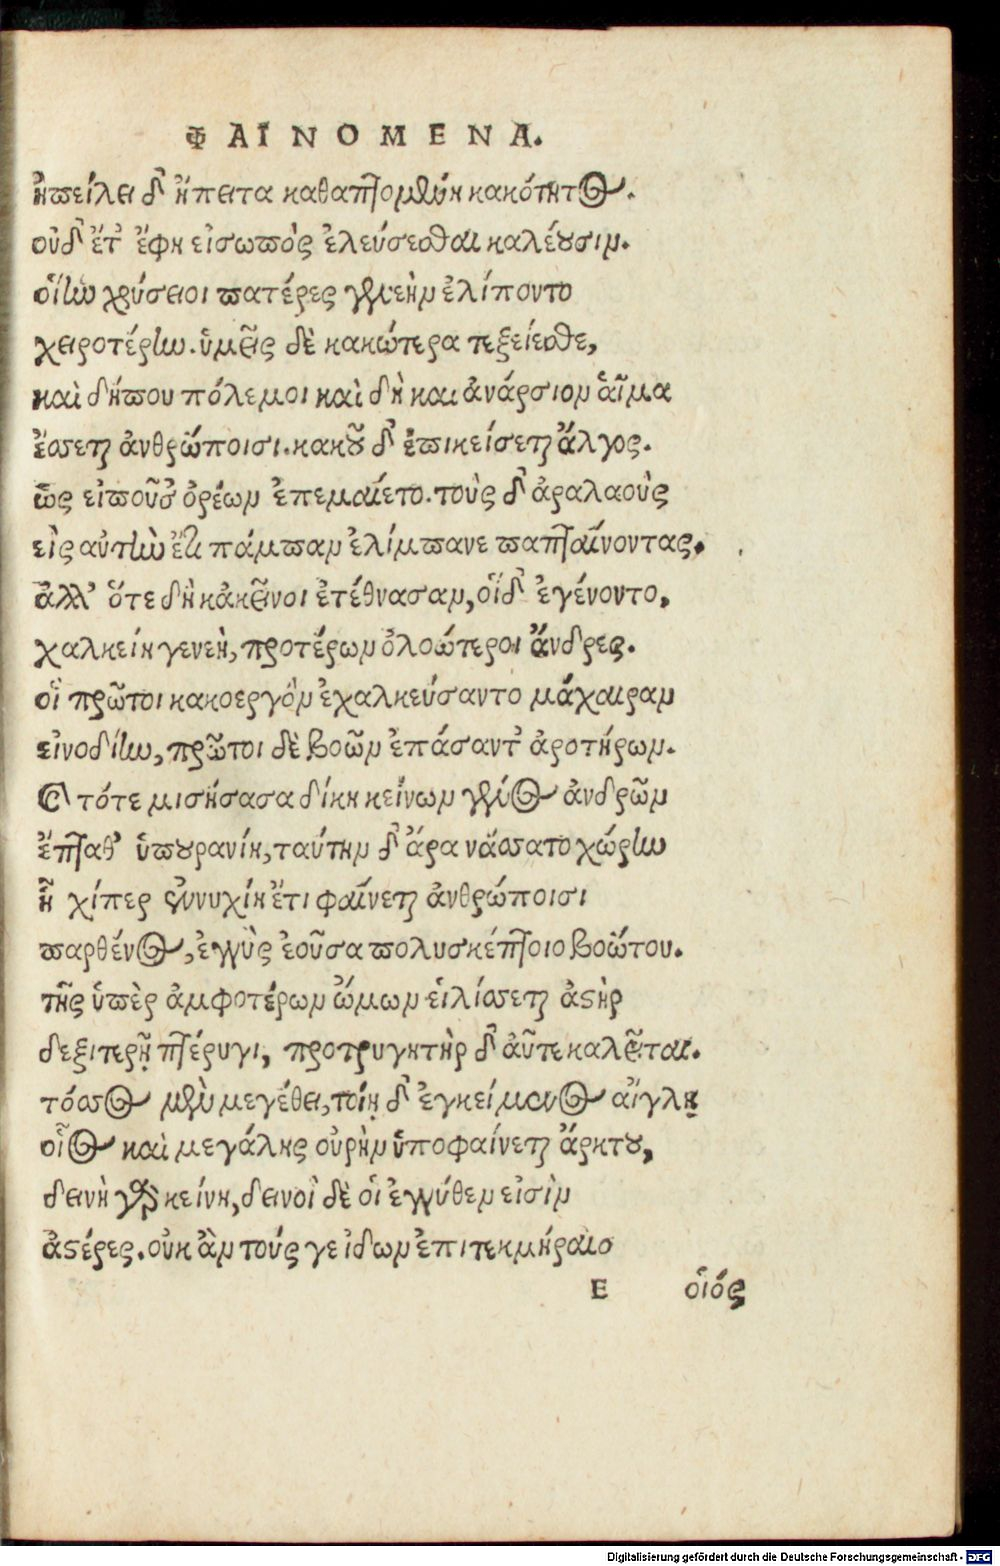 ΦΑΙΝΟΜΕΝΑ.
ἠπείλει δ' ἤπειτα καθαπτομένη κακότητος.
οὐδ' ἔτ' ἔφη εἰσωπὸς ἐλεύσεσθαι καλέουσιν.
οἵην χρύσειοι πατέρες γενεὴν ἐλίποντο
χειροτέρην. ὑμεῖς δὲ κακώτερα τεξείεσθε,
καὶ δήπου πόλεμοι καὶ δὴ και ἀνάρσιον αἷμα
ἔσσεται ἀνθρώποισι. κακοῦ δ' ἐπικείσεται ἄλγος.
ὣς εἰποῦσ' ὀρέων ἐπεμαίετο. τοὺς δ' ἄρα λαοὺς
εἰς αὐτὴν ἔτι πάμπαν ἐλίμπανε παπταίνοντας.
ἀλλ' ὅτε δὴ κἀκεῖνοι ἐτέθνασαν, οἵδ' ἐγένοντο,
χαλκείη γενεὴ, προτέρων ὀλοώτεροι ἄνδρες.
οἳ πρῶτοι κακοεργὸν ἐχαλκεύσαντο μάχαιραν
εἰνοδίην, πρῶτοι δὲ βοῶν ἐπάσαντ' ἀροτήρων.
Καὶ τότε μισήσασα δίκη κείνων γένος ἀνδρῶν
ἔπταθ' ὑπουρανίη, ταύτην δ' ἄρα νάσσατο χώρην
ἧ χίπερ ἐννυχίη ἔτι φαίνεται ἀνθρώποισι
παρθένος, ἐγγὺς ἐοῦσα πολυσκέπτοιο βοώτου.
τῆς ὑπὲρ ἀμφοτέρων ὤμων εἱλίσσεται ἀστὴρ
δεξιτερῇ πτέρυγι, προτρυγητὴρ δ' αὖτε καλεῖται.
τόσσος μὲν μεγέθει, τοίῃ δ' ἐγκείμενος αἴγλῃ
οἷος καὶ μεγάλης οὐρὴν ὑποφαίνεται ἄρκτου,
δεινὴ γὰρ κείνη, δεινοὶ δὲ οἱ ἐγγύθεν εἰσὶν
ἀστέρες. οὐκ ἂν τούς γε ἰδων ἐπιτεκμήραιο
E οἷός
Digitalisierung gefördert durch die Deutsche Forschungsgemeinschaft - DFG